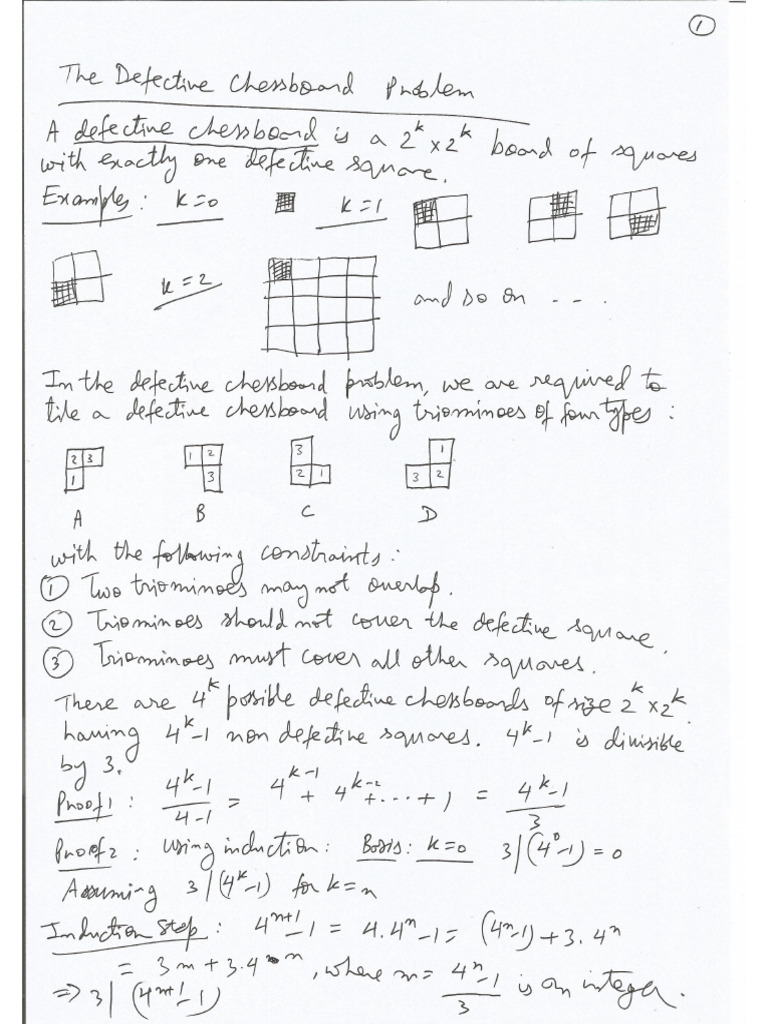 ①
The Defective Chessboard Problem
A defective chessboard is a 2^k × 2^k board of squares
with exactly one defective square.
Examples : k=0 k=1
k=2 and so on - - - .
In the defective chessboard problem, we are required to
tile a defective chessboard using triominoes of four types :
2 3 1 2 3 1
1 3 2 1 3 2
A B C D
with the following constraints :
① Two triominoes may not overlap.
② Triominoes should not cover the defective square.
③ Triominoes must cover all other squares.
There are 4^k possible defective chessboards of size 2^k × 2^k.
having 4^k-1 non defective squares. 4^k-1 is divisible
by 3.
Proof 1 : (4^k-1)/(4-1) = 4^(k-1) + 4^(k-2) + ... + 1 = (4^k-1)/3
Proof 2 : Using induction : Basis : k=0 3|(4^0-1) = 0
Assuming 3|(4^k-1) for k=n
Induction Step : 4^(n+1)-1 = 4.4^n-1 = (4^n-1)+3.4^n
= 3m+3.4^n, where m= (4^n-1)/3 is an integer.
⇒ 3|(4^(n+1)-1)